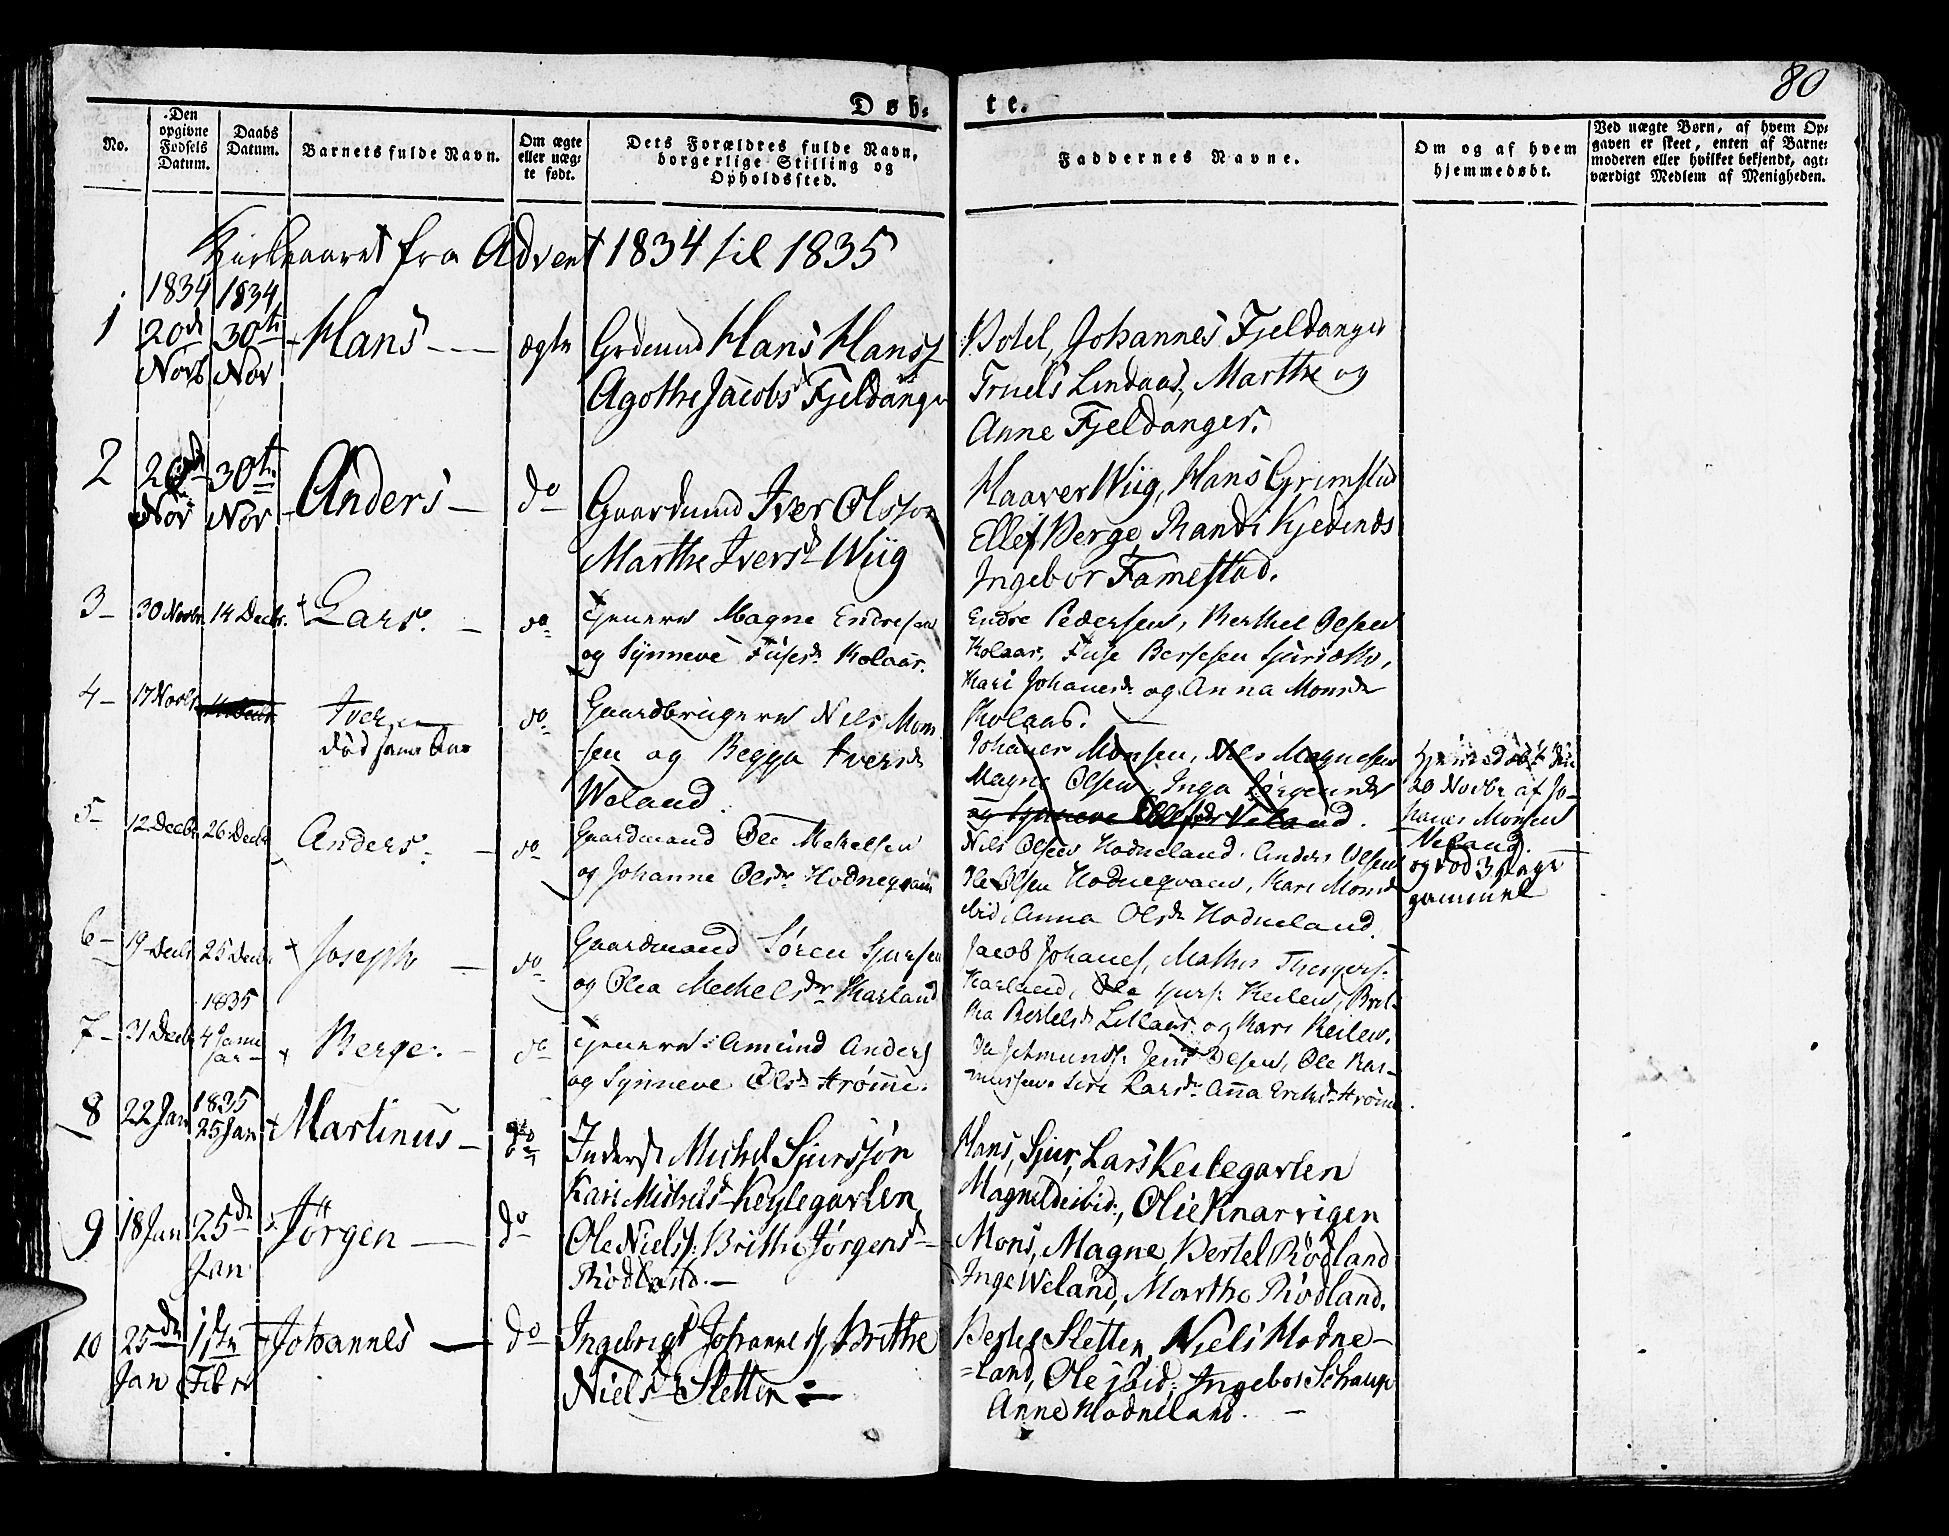 80
Døb-
te.
No.
Den
opgivne
Fødsels
Datum.
Daabs
Datum.
Barnets fulde Navn.
Om ægte
eller uæg-
te født.
Dets Forældres fulde Navn,
borgerlige Stilling og
Opholdssted.
Faddernes Navne.
Om og af hvem
hjemmedøbt.
Ved uægte Børn, af hvem Op-
gaven er skeet, enten af Barne-
moderen eller hvilket bekjendt, agt-
værdigt Medlem af Menigheden.
Kirkeaaret fra Advent 1834 til 1835
1834 1834
1 20de 30te Hans ægte Grdmnd Hans Hanss
Novb Nov Agothe Jacobsd Fjeldanger
Botel, Johannes Fjeldanger
Truels Lindaas, Marthe og
Anne Fjeldanger.
2 30te Anders do Gaardmnd Iver Olsson
Nov Nov Marthe Iversd Wiig
Haaver Wiig, Hans Grimstad
Ellef Berge, Randi Kjedinds
Ingebor Famestad.
3 30 Novbr. 14 Decbr. Lars. do Tjenere Magne Endresen
og Synneve Fusesdr. Kolaas.
Endre Pedersen, Berthel Olsen
Kolaas, Fuse Bersesen
Kari Johanesdr og Anna Monsdr
Kolaas.
4 17 Novbr Iver do Gaardbrugere Nils Mon-
død samme Aar
sen og Begga Iversdr
Weland.
Johanes Monsen, Nils Magnesen
Magne Olsen, Inga Jørgensdr
og Synneve Ellefsdr Veland.
Hjemmedøbt den
20 Novbr af Jo-
hanes Monsen
Veland.
og død 3 Dage
gammel
5 12 Decbr 26 Decbr Anders. do Gaardmand Ole Mekelsen
og Johanne Olsdr. Hodneqvam
Nils Olsen Hodneland, Anders Olsen
Ole Olsen Hodneqvam, Kari Monsdr
ibid, Anna Olsdr Hodneland.
6 19 Decbr 25 Decbr Joseph do Gaardmand Søren Sjursen
og Olea Mekelsdr. Karland
Jacob Johanes,
Karland, Ole Sjurs. Keilen, Brit-
tha Bertelsd Lillaas og Kari Keilen.
1835
7 31 Decbr 4 Janu
ar
Berge. do Tjenere: Amund Anders
og Synneve Olsdr Strømme.
Jens Olsen, Ole Ras-
mussen. Siri Larsdr. Anna Eriksdr Strømme.
1835
8 22 Jan 25 Jan Martinus do Inderst Michel Sjurssøn
Kari Michelsd Keylegavlen
Hans, Sjur, Lars Keilegavlen
Magnilde ibid:, Olie Knarvigen
9 18 Jan 25de Jørgen do Ole Nielss: Brithe Jørgensd
Jan Rødland.
Mons, Magne, Bertel Rødland
Inge Weland, Marthe Rødland.
10 25de 1ste Johannes do Ingebrigt Johannes, Brithe
Jan Febr Nielsd Sletten
Bertel Sletten, Niels Hodne-
land, Ole ibid, Ingebor
Anne Hodneland.